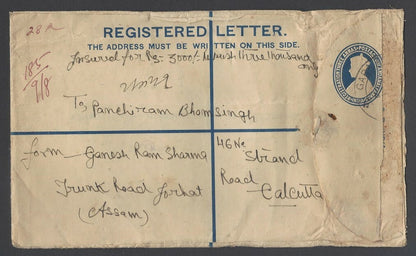 28 R
185
9/8
REGISTERED LETTER.
THE ADDRESS MUST BE WRITTEN ON THIS SIDE.
Insured for Rs. 3000/- Rupees three thousand only
To Panchiram Bhomsingh
46 No Strand
Road
Calcutta
form Ganesh Ram Sharma
Trunk Road Jorhat
(Assam)